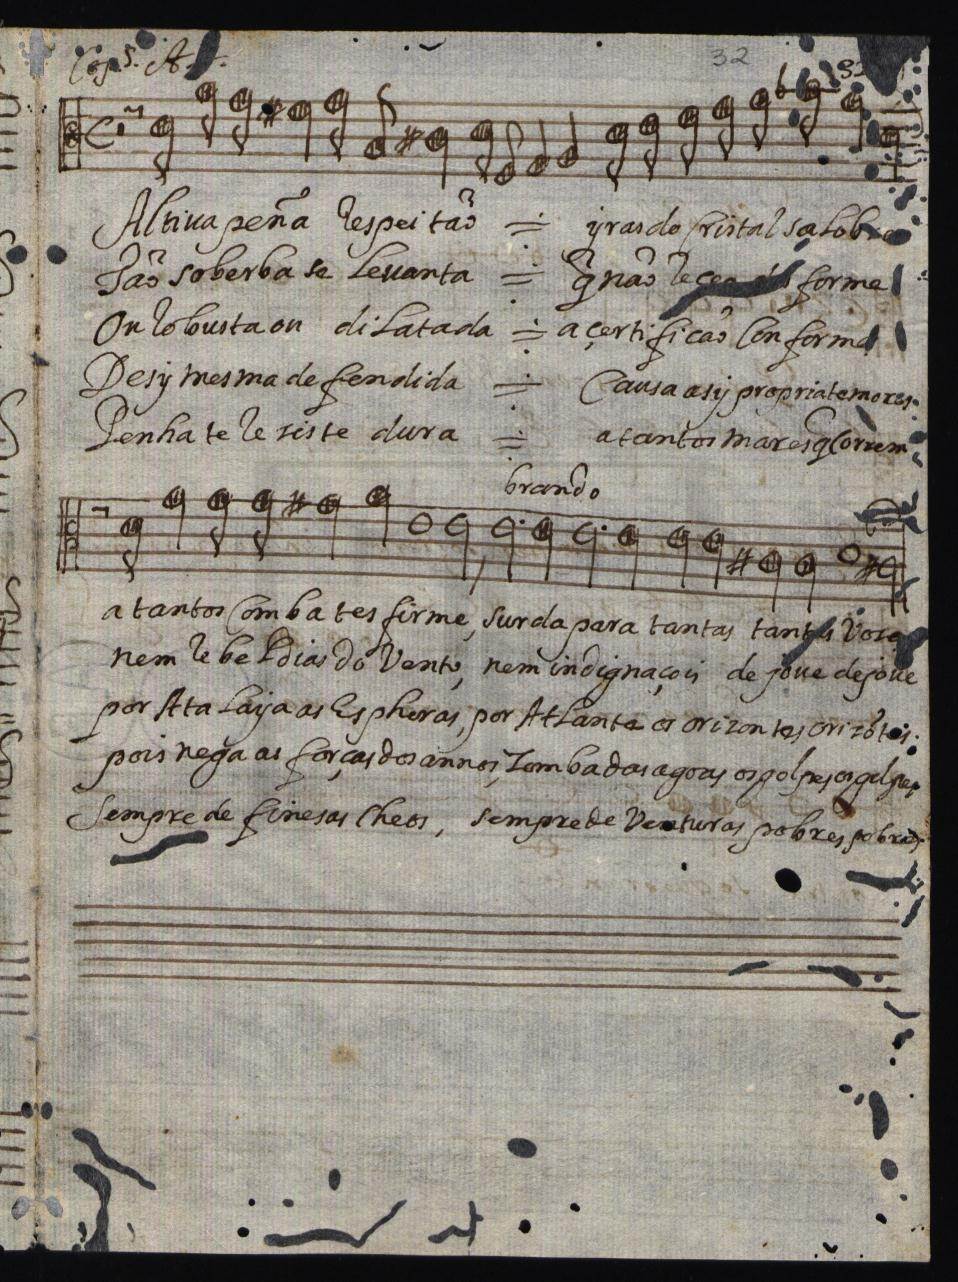 Cop.s. A 4. 32
Altiua peña respeitaõ = yras do Cristal salobre
Taõ soberba se leuanta = q̃ naõ forme
Ou robusta ou dilatada = a çertificaõ Conforme
Desy mesma defendida = Causa asy propria temores.
Penha te resiste dura = a tantos mares q̃ Correm
brando
a tantos Combates firme, surda para tantas tantas Vozes
nem rebeldias do Vento, nem indignaçois de joue de joue
por Atalaya as Espheras, por Atlante os orizontes orizõtes.
pois nega as forças dos annos, Zomba das agoas os golpes os golpes
Sempre de finesas Cheos, sempre de Venturas pobres pobres.